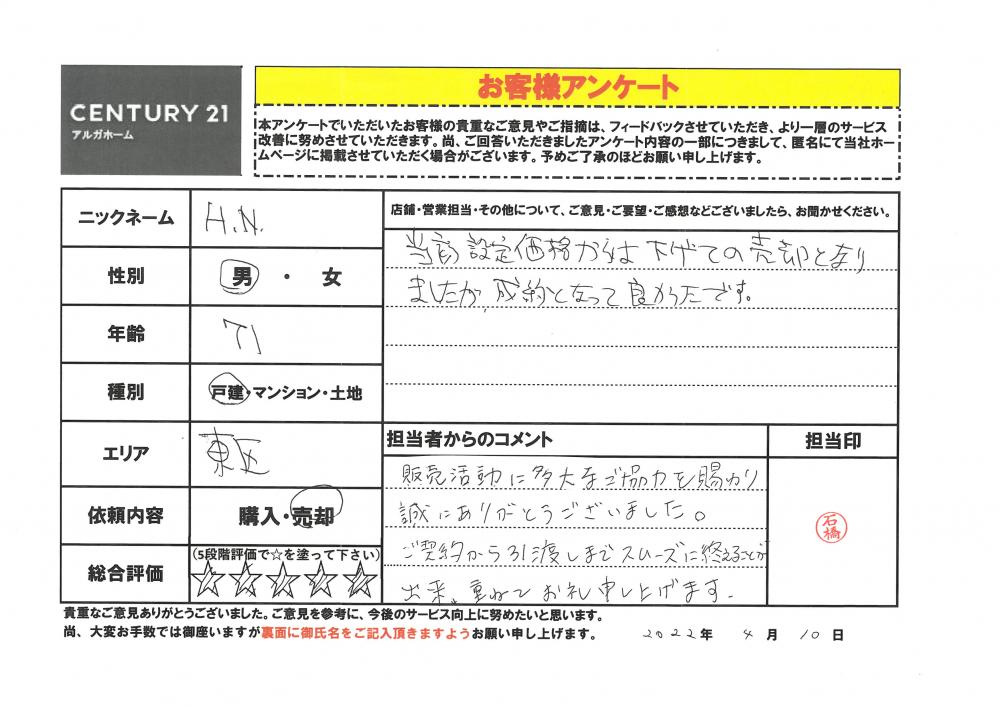 CENTURY 21
アルガホーム
お客様アンケート
本アンケートでいただいたお客様の貴重なご意見やご指摘は、フィードバックさせていただき、より一層のサービス
改善に努めさせていただきます。尚、ご回答いただきましたアンケート内容の一部につきまして、匿名にて当社ホー
ムページに掲載させていただく場合がございます。予めご了承のほどお願い申し上げます。
ニックネーム
H.N.
性別
男・女
年齢
71
種別
戸建・マンション・土地
エリア
東区
依頼内容
購入・売却
総合評価
(5段階評価で☆を塗って下さい)
☆☆☆☆☆
店舗・営業担当・その他について、ご意見・ご要望・ご感想などございましたら、お聞かせください。
当初設定価格からは下げての売却となり
ましたが成約となって良かったです。
担当者からのコメント
販売活動に多大なご協力を賜わり
誠にありがとうございました。
ご契約から引渡しまでスムーズに終えることが
出来、重ねてお礼申し上げます。
担当印
石橋
貴重なご意見ありがとうございました。ご意見を参考に、今後のサービス向上に努めたいと思います。
尚、大変お手数では御座いますが裏面に御氏名をご記入頂きますようお願い申し上げます。
2022年 4月 10日